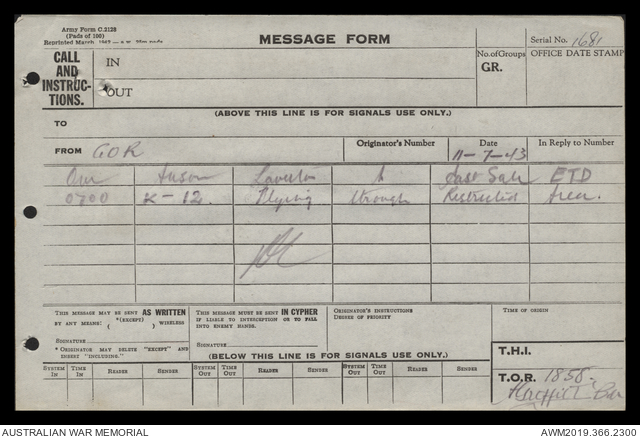 Army Form C.2128
(Pads of 100)
MESSAGE FORM
Serial No. 1681
CALL AND INSTRUCTIONS.
IN
OUT
No. of Groups
GR.
OFFICE DATE STAMP
(ABOVE THIS LINE IS FOR SIGNALS USE ONLY.)
TO
FROM GOR
Originator's Number
Date
11-7-43
In Reply to Number
One Anson Laverton to East Sale ETD
0700 K-12 Flying through Restricted Area.
THIS MESSAGE MAY BE SENT AS WRITTEN
BY ANY MEANS: *(EXCEPT) ( ) WIRELESS
SIGNATURE
* ORIGINATOR MAY DELETE "EXCEPT" AND
INSERT "INCLUDING."
THIS MESSAGE MUST BE SENT IN CYPHER
IF LIABLE TO INTERCEPTION OR TO FALL
INTO ENEMY HANDS.
SIGNATURE
ORIGINATOR'S INSTRUCTIONS
DEGREE OF PRIORITY
TIME OF ORIGIN
(BELOW THIS LINE IS FOR SIGNALS USE ONLY.)
T.H.I.
SYSTEM IN TIME IN READER SENDER SYSTEM OUT TIME OUT READER SENDER SYSTEM OUT TIME OUT READER SENDER
T.O.R. 1858
AUSTRALIAN WAR MEMORIAL
AWM2019.366.2300